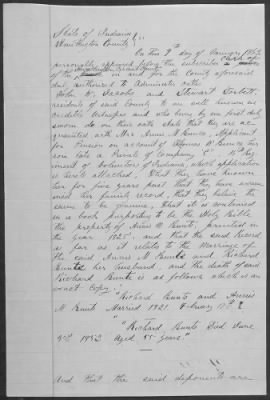 State of Indiana
Huntington County
On this 9th day of January 1863
personally appeared before the subscriber Clerk of
of the in and for the County aforesaid
duly authorized to Administer oaths
John W. Jacobs and Stewart
residents of said County to me well known as
credible witnesses and who being by me first duly
sworn do on their oaths state that they are ac
quainted with Mrs Annis M Bunts, Applicant
for Pension on account of Bunts her
son late a Private of Company
ment of Volunteers of Indiana, which application
is hereto attached, that they have known
her for five years past that they have exam
ined her family record, that they believe the
same to be genuine, that it is contained
in a book purporting to be the Holy Bible
the property of Annis M Bunts, printed in
the year 1825, and that the said record
as far as it relates to the Marriage of
the said Annis M Bunts and Richard
Bunts her husband, and the death of said
Richard Bunts is as follows which is an
exact copy:
"Richard Bunts and Annis
M Bunts Married 1821 February 17th"
"Richard Bunts died June
1853 Aged 55 years"
And that the said deponents are